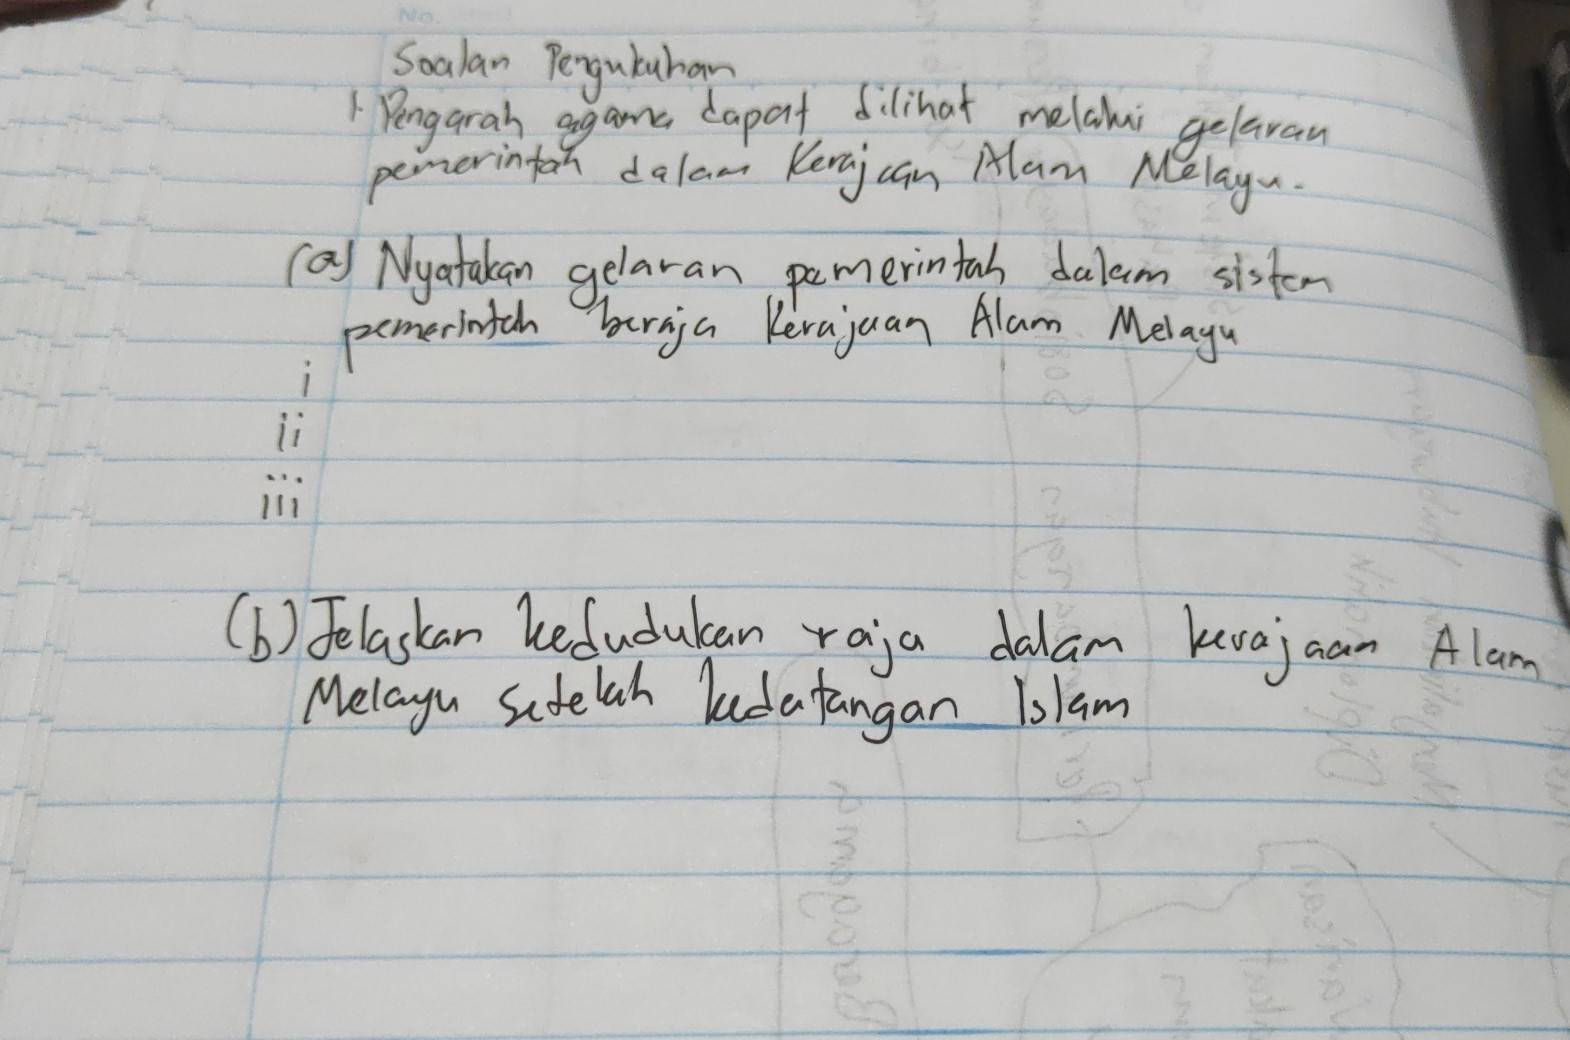 No.
Soalan Pengukuhan
1. Pengarah agama dapat dilihat melalui gelaran
pemerintah dalam Kerajaan Alam Melayu.
(a) Nyatakan gelaran pemerintah dalam sistem
pemerintah beraja Kerajaan Alam Melayu
i
ii
iii
(b) Jelaskan kedudukan raja dalam kerajaan Alam
Melayu setelah kedatangan Islam